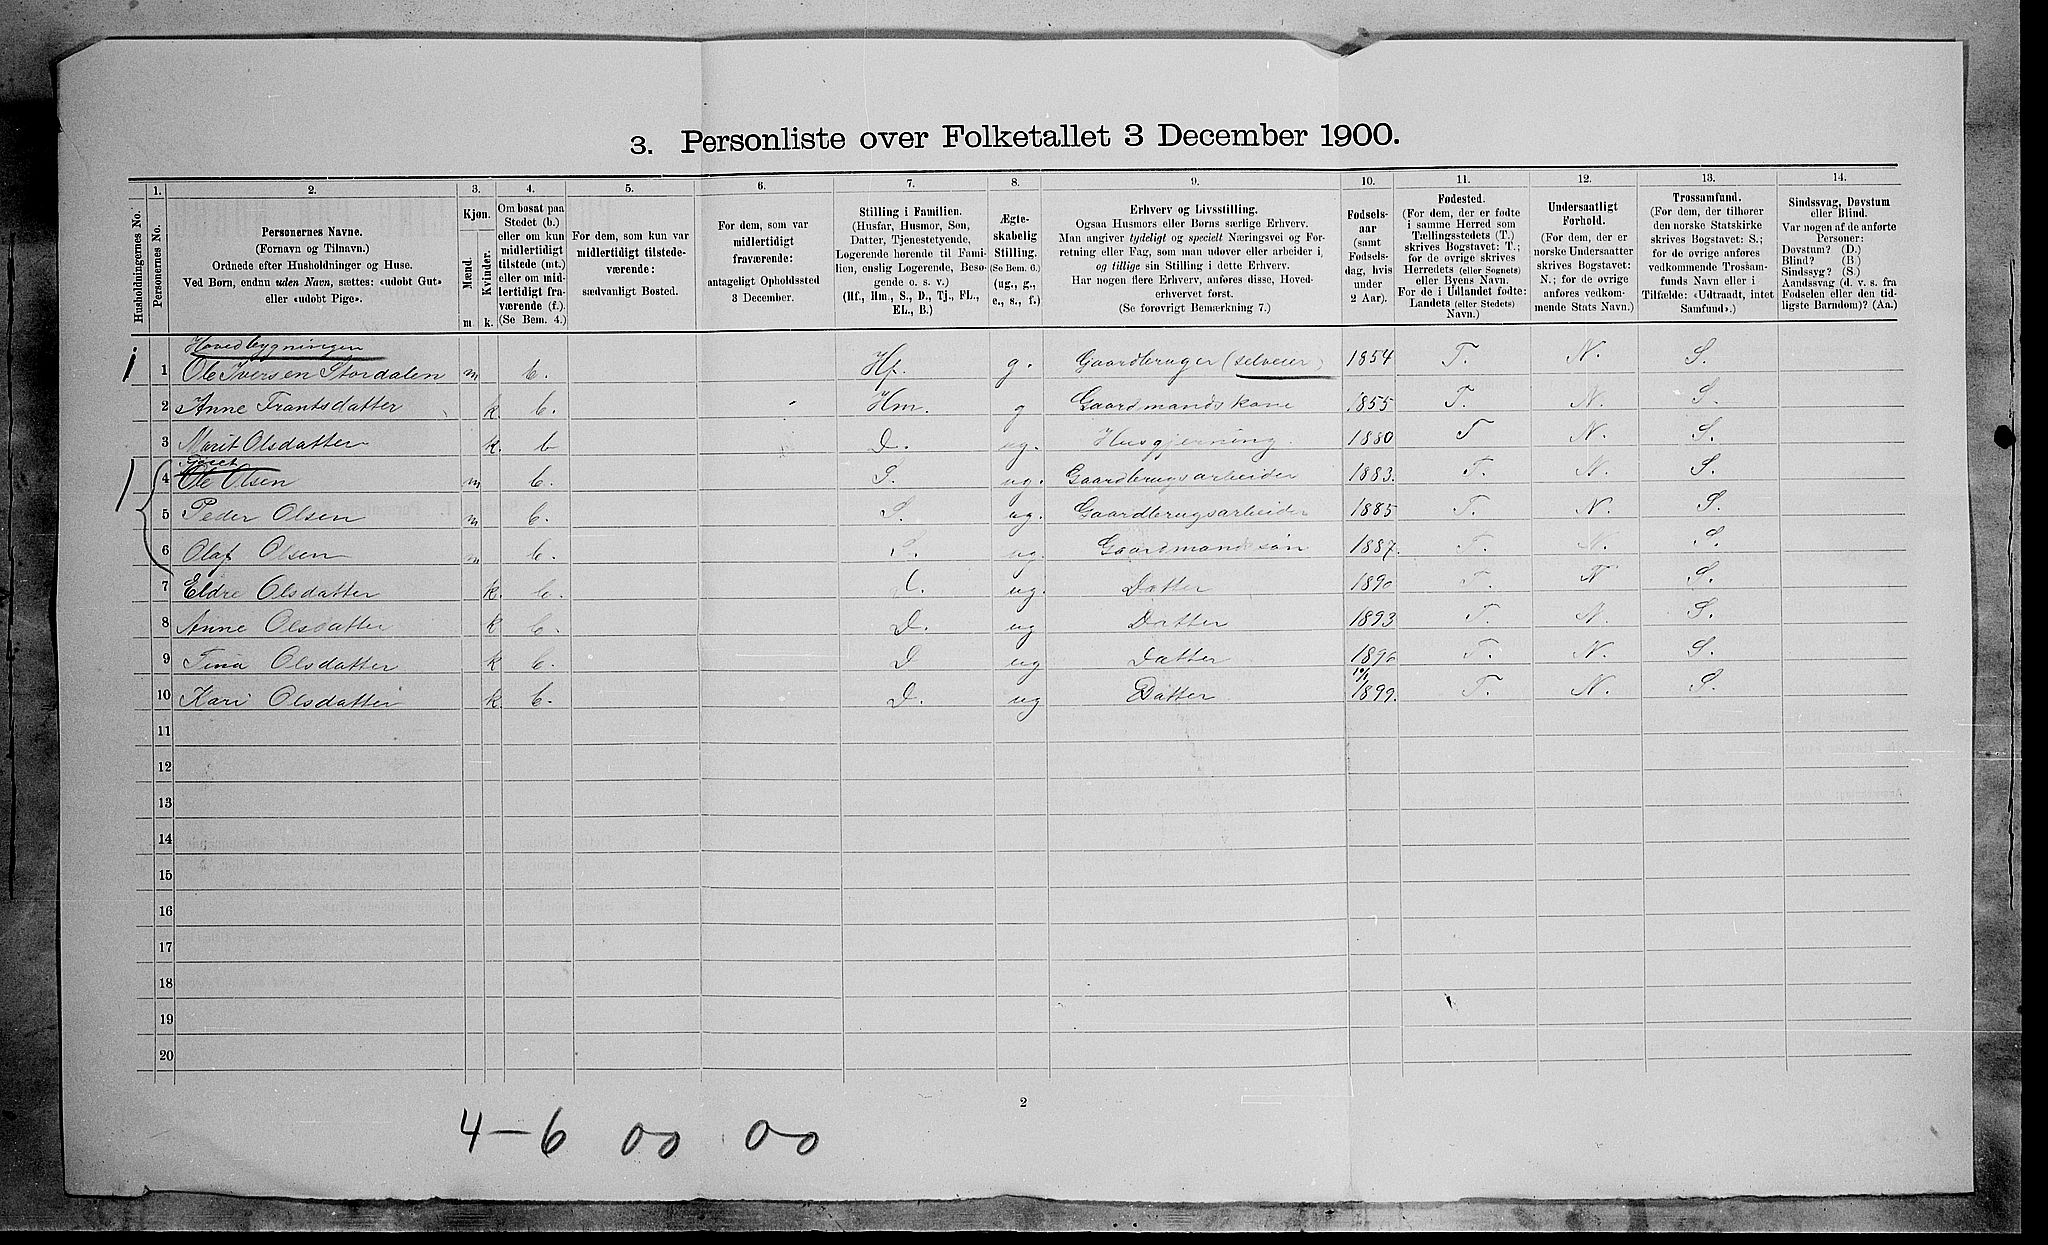 3. Personliste over Folketallet 3 December 1900.
1. 2. 3. 4. 5. 6. 7. 8. 9. 10. 11. 12. 13. 14.
Husholdningernes No.
Personernes No.
Personernes Navne.
(Fornavn og Tilnavn.)
Ordnede efter Husholdninger og Huse.
Ved Børn, endnu uden Navn, sættes: «udøbt Gut»
eller «udøbt Pige».
Kjøn.
Mænd.
Kvinder.
m k.
Om bosat paa
Stedet (b.)
eller om kun
midlertidigt
tilstede (mt.)
eller om mid-
lertidigt fra-
værende (f.).
(Se Bem. 4.)
For dem, som kun var
midlertidigt tilstede-
værende:
sædvanligt Bosted.
For dem, som var
midlertidigt
fraværende:
antageligt Opholdssted
3 December.
Stilling i Familien.
(Husfar, Husmor, Søn,
Datter, Tjenestetyende,
Logerende hørende til Fami-
lien, enslig Logerende, Besø-
gende o. s. v.)
(Hf., Hm., S., D., Tj., FL.,
EL., B.)
Ægte-
skabelig
Stilling.
(Se Bem. 6.)
(ug., g.,
e., s., f.)
Erhverv og Livsstilling.
Ogsaa Husmors eller Børns særlige Erhverv.
Man angiver tydeligt og specielt Næringsvei og For-
retning eller Fag, som man udøver eller arbeider i,
og tillige sin Stilling i dette Erhverv.
Har nogen flere Erhverv, anføres disse, Hoved-
erhvervet først.
(Se forøvrigt Bemærkning 7.)
Fødsels-
aar
(samt
Fødsels-
dag, hvis
under
2 Aar).
Fødested.
(For dem, der er fødte
i samme Herred som
Tællingsstedets (T.)
skrives Bogstavet: T.;
for de øvrige skrives
Herredets (eller Sognets)
eller Byens Navn.
For de i Udlandet fødte:
Landets (eller Stedets)
Navn.)
Undersaatligt
Forhold.
(For dem, der er
norske Undersaatter
skrives Bogstavet:
N.; for de øvrige
anføres vedkom-
mende Stats Navn.)
Trossamfund.
(For dem, der tilhører
den norske Statskirke
skrives Bogstavet: S.;
for de øvrige anføres
vedkommende Trossam-
funds Navn eller i
Tilfælde: «Udtraadt, intet
Samfund».)
Sindssvag, Døvstum
eller Blind.
Var nogen af de anførte
Personer:
Døvstum? (D.)
Blind? (B.)
Sindssyg? (S.)
Aandssvag (d. v. s. fra
Fødselen eller den tid-
ligste Barndom)? (Aa.)
Hovedbygningen
1 Ole Iversen Stordalen m b. Hf. g. Gaardbruger (selveier) 1854 T. N. S.
2 Anne Frantsdatter k b. Hm. g Gaardmandskone 1855 T. N. S.
3 Marit Olsdatter k. b D. ug. Husgjerning. 1880 T N. S.
4 Ole Olsen m b. S. ug. Gaardbrugsarbeider 1883. T. N. S.
5 Peder Olsen m b. S. ug. Gaardbrugsarbeider 1885 T. N. S.
6 Olaf Olsen m b. S. ug. Gaardmandssøn 1887. T. N. S.
7 Eldre Olsdatter k. b. D. ug. Datter 1890 T. N S.
8 Anne Olsdatter k b. D. ug Datter 1893 T. N. S.
9 Tina Olsdatter k b. D ug Datter 1896 T. N. S.
10 Kari Olsdatter k. b. D. ug Datter 1899. T. N. S.
11
12
13
14
15
16
17
18
19
20
2
4-6 00 00